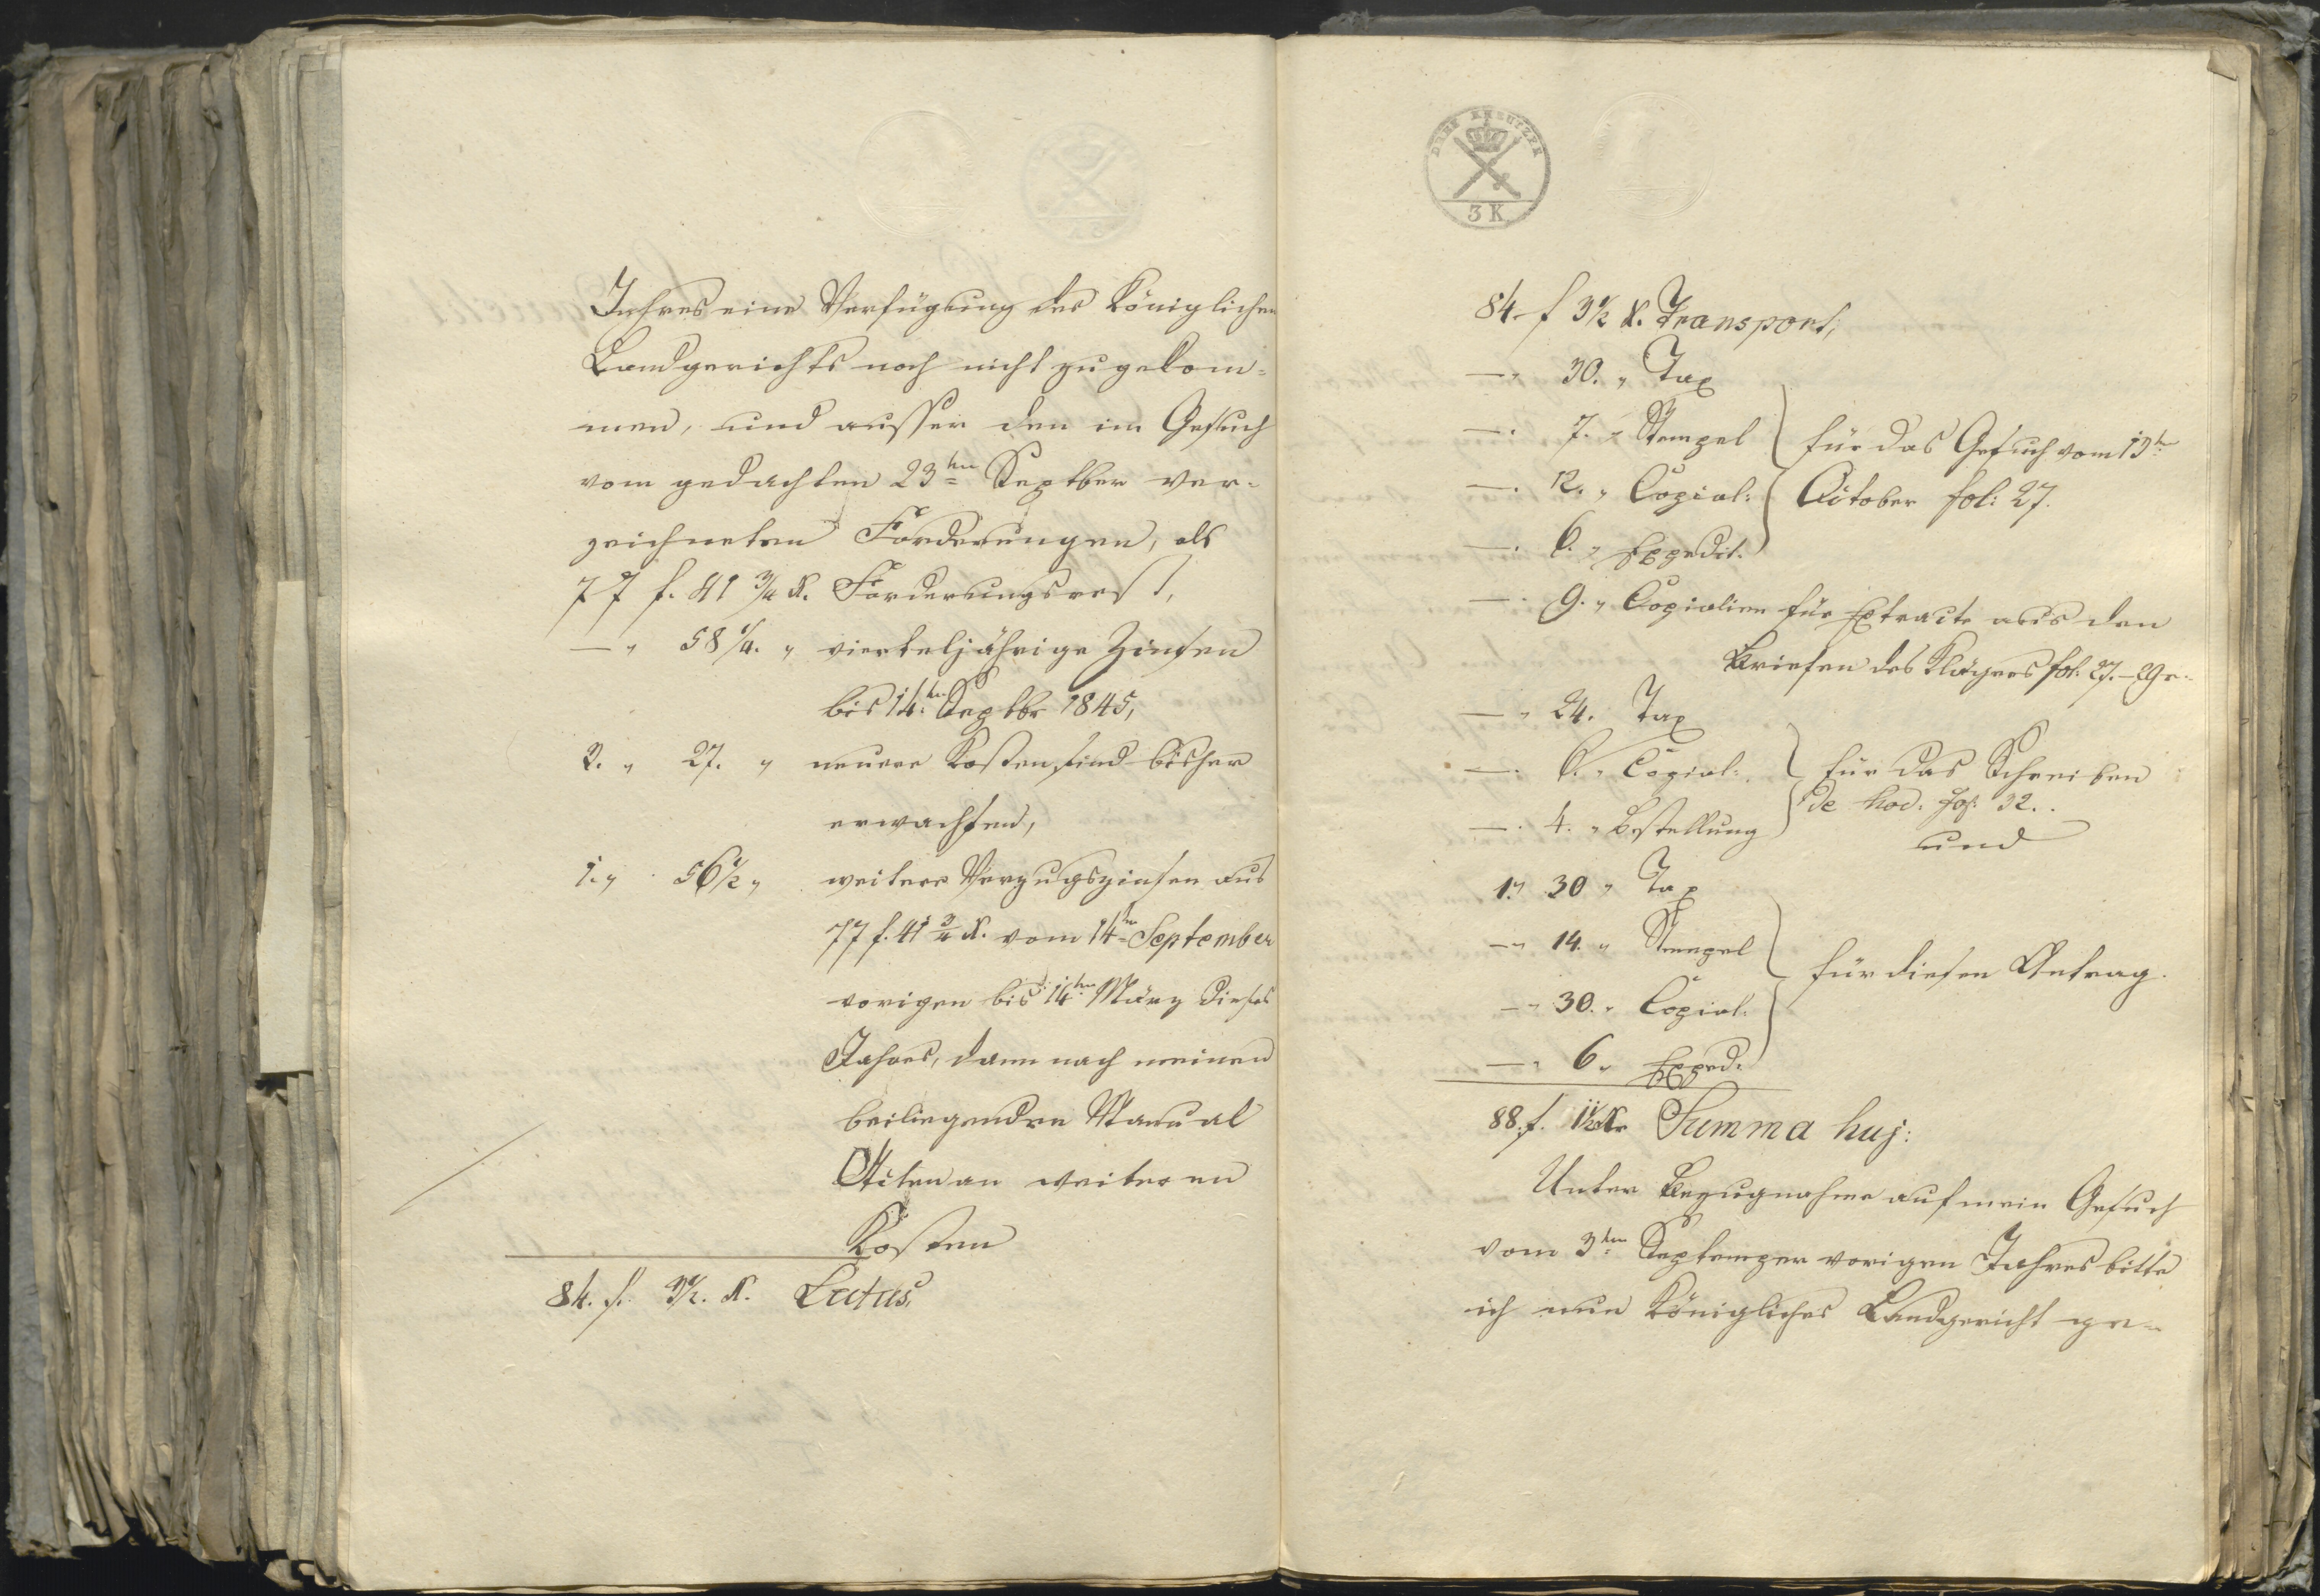 Jahres eine Verfügung des Königlichen
Landgerichts noch nicht zugekom=
men, und ausser den im Gesuch
vom gedachten 23ten Septber ver=
zeichneten Forderungen, als
77 f. 41 3/4 K. Forderungsrest,
— " 58 1/4. " vierteljährige Zinsen
bis 14ten Septbr 1845,
2. " 27. " neuere Kosten sind bisher
erwachsen,
1. " 56 1/2 " weitere Verzugszinsen aus
77 f. 41 3/4 K. vom 14ten September
vorigen bis 14ten März dieses
Jahres, dann nach meinen
beiliegenden Manual
Akten an weiteren
Kosten
84. f. 3 1/2. K. Latus,
DREI KREUTZER
3 K
84. f 3 1/2 K. Transport,
— " 30. " Tax
— . 7. " Stempel
— . 12. " Copial:
— . 6. " Expedit.
für das Gesuch vom 13ten
October fol: 27.
— . 9. " Copialien für Extracte aus den
Briefen des Klägers fol. 27.–29 c.
— " 24. Tax
— . 6. " Copial:
— . 4. " Bestellung
für das Schreiben
de hod. fol. 32..
und
1. " 30 " Tax
— " 14. " Stempel
— " 30. " Copial.
— " 6. Exped.
für diesen Antrag.
88. f. 11 1/2 Kr Summa huj:
Unter Bezugnahme auf mein Gesuch
vom 3ten Septemper vorigen Jahres bitte
ich nun Königliches Landgericht ge=